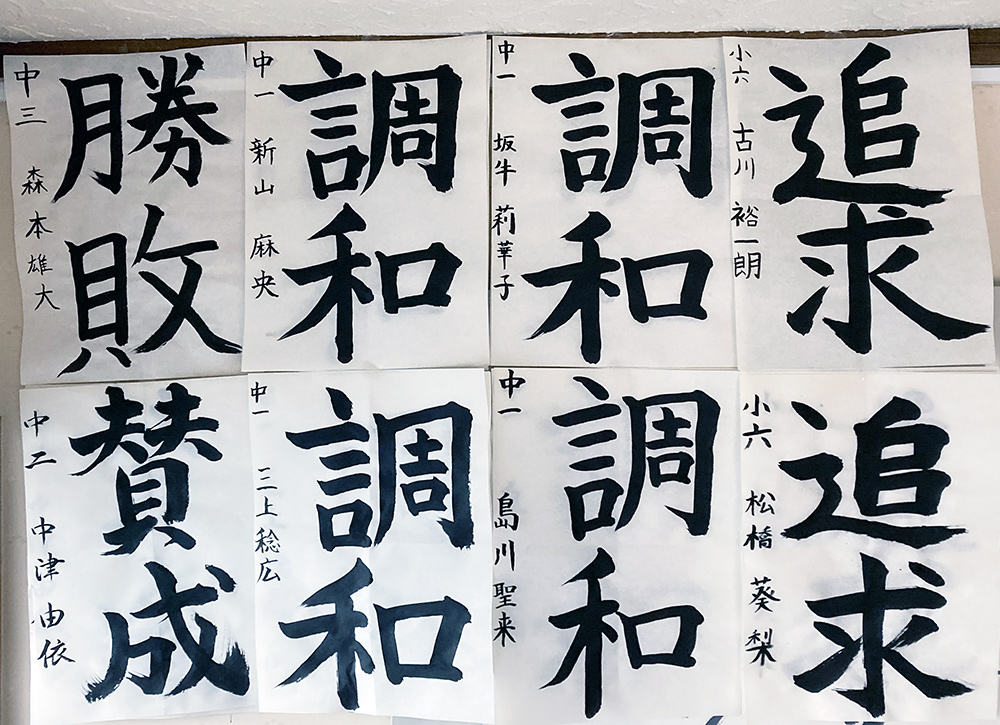 追求
小六 古川 裕一朗
調和
中一 坂牛 莉華子
調和
中一 新山 麻央
勝敗
中三 森本雄大
追求
小六 松橋 葵梨
調和
中一 島川 聖来
調和
中一 三上稔広
賛成
中二 中津 由依